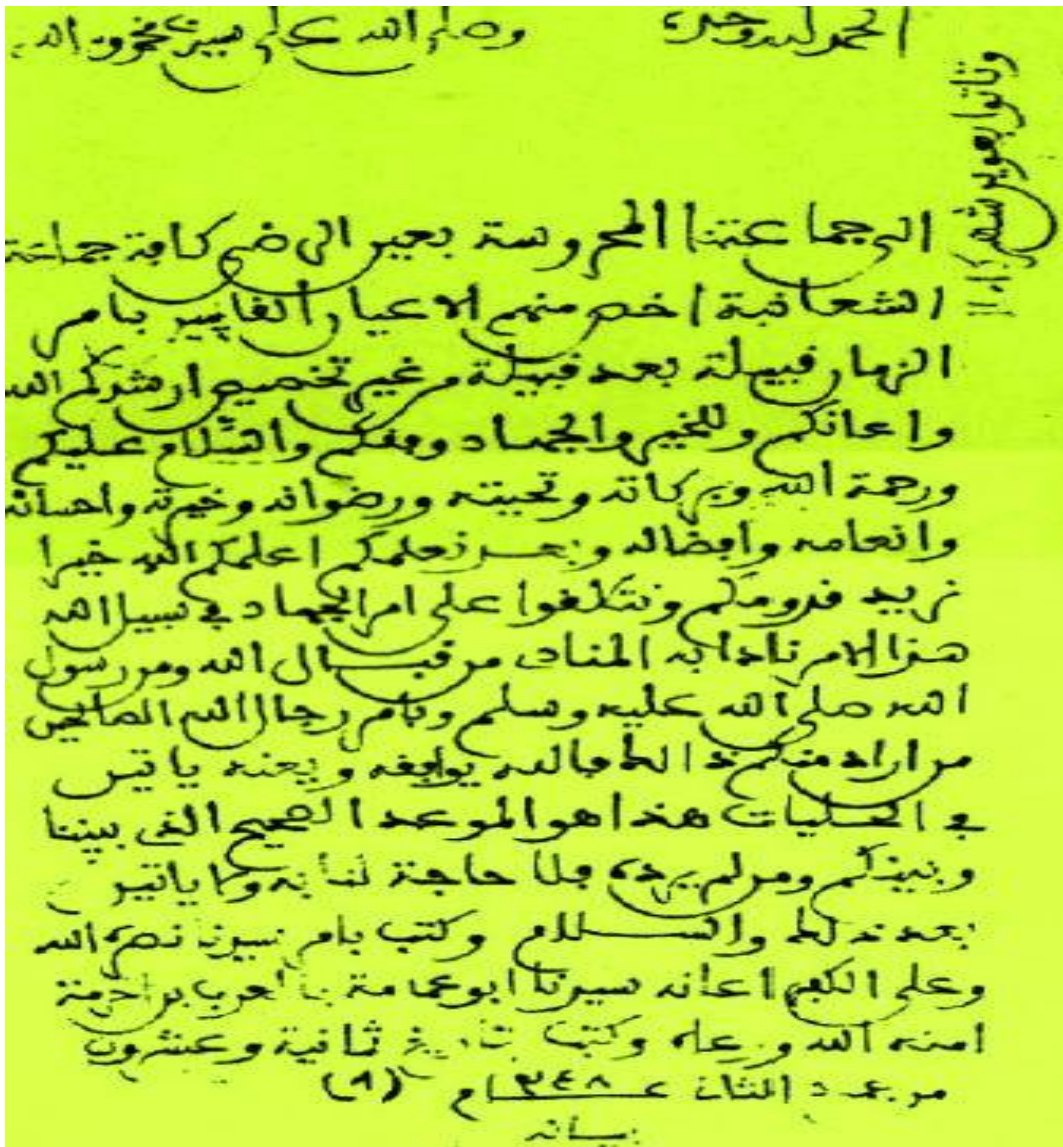 الحمد لله وحده وصلى الله على سيدنا محمد وآله
الى جماعتنا المحروسة بعين الرضى كافة جماعة
الشعانبة اخص منهم الاعيان القايمين بامر
النهار قبيلة بعد قبيلة من غير تخصيص ارشدكم الله
واعانكم وللخير والجهاد وفقكم والسلام عليكم
ورحمة الله وبركاته وتحيته ورضوانه وخيرته واحسانه
وانعامه وافضاله وبعد نعلمكم اعلمكم الله خيرا
نريد قدومكم ونتلقوا على امر الجهاد في سبيل الله
هذا الامر نادا به المناد من قبال الله ومن رسول
الله صلى الله عليه وسلم وبامر رجال الله الصالحين
من اراد منكم ذالك فالله يوافقه ويعنه ياتين
في هذا هو الموعد الصحيح الذي بيننا
وبينكم ومن لم يرده فلا حاجة لنا به ولا ياتين
بعد ذلك والسلام وكتب بامر سيدنا نصره الله
وعلى الكفر اعانه سيدنا ابو عمامة بن العرب بن الحرمة
امنه الله ورعاه وكتب بتاريخ ثانية وعشرون
من جمد الثان عام ٣٤٨ (٩)
وتاتوا بعوين شهر